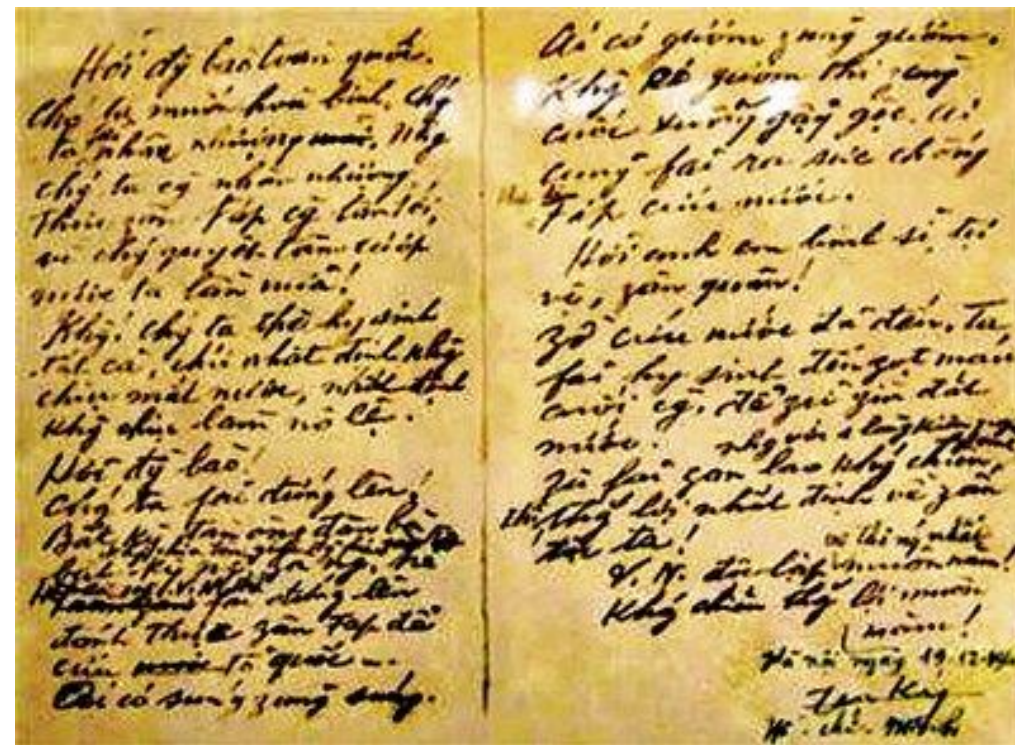 Hỡi đg bào toàn quốc.
Chg ta muốn hoà bình, chg
ta đã nhân nhượng. Nhg
chg ta cg nhân nhượng
thực zân Fáp cg lấn tới,
vì chg quyết tâm cướp
nước ta lần nữa!
Khg! chg ta thà hy sinh
tất cả, chứ nhất định khg
chịu mất nước, nhất định
khg chịu làm nô lệ.
Hỡi đg bào!
Chg ta fải đứng lên!
Bất kỳ đàn ông đàn bà
fải đứng lên
đánh thực zân Fáp để
cứu tổ quốc
Ai có súng zùng súng.
Ai có gươm zùng gươm.
Khg có gươm thì zùng
cuốc xuổng gậy gộc. Ai
cũng fải ra sức chống
Fáp cứu nước.
Hỡi anh em binh sĩ, tự
vệ, zân quân!
Zờ cứu nước đã đến. Ta
fải hy sinh đến zọt máu
cuối cg, để zữ zìn đất
nước.
Zù fải gian lao khg chiến,
thg lợi nhất định về zân
tộc ta!
V.N. độc lập và thống nhất muôn năm!
Khg chiến thg lợi muôn
năm!
Hà nội ngày 19-12-46
Hồ chí Minh